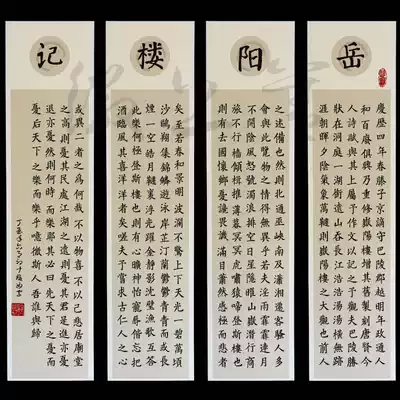 岳
慶曆四年春滕子京謫守巴陵郡越明年政通人
和百廢俱興乃重修嶽陽樓增其舊制刻唐賢今
人詩賦與其上屬予作文以記之予觀夫巴陵勝
狀在洞庭一湖銜遠山吞長江浩浩湯湯橫無際
涯朝暉夕陰氣象萬千此則嶽陽樓之大觀也前人
阳
之述備也然則北通巫峽南及瀟湘遷客騷人多
會與此覽物之情得無異乎若夫淫雨霏霏連月
不開陰風怒號濁浪排空日星隱曜山嶽潛行商
旅不行檣傾楫摧薄暮冥冥虎嘯猿啼登斯樓也
則有去國懷鄉憂讒畏譏滿目蕭然感極而悲者
楼
矣至若春和景明波瀾不驚上下天光一碧萬頃
沙鷗翔集錦鱗遊泳岸芷汀蘭鬱鬱青青而或長
煙一空皓月千里浮光躍金靜影沉璧漁歌互答
此樂何極登斯樓也則有心曠神怡寵辱偕忘把
酒臨風其喜洋洋者矣嗟夫予嘗求古仁人之心
记
或異二者之為何哉不以物喜不以己悲居廟堂
之高則憂其民處江湖之遠則憂其君是進亦憂
退亦憂然則何時而樂耶其必曰先天下之憂而
憂后天下之樂而樂乎噫微斯人吾誰與歸